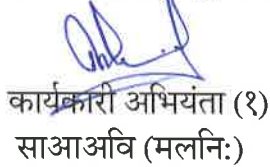 कार्यकारी अभियंता (१)
साआअवि (मलनि:)